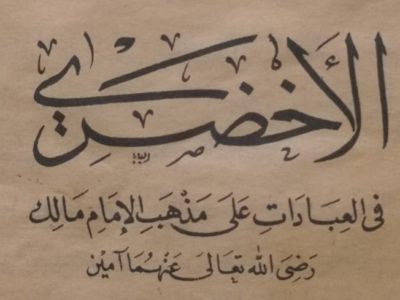 الأخضري
في العِبَادَاتِ عَلَى مَذْهَبِ الإِمَامِ مَالِك
رَضِيَ الله تعَالَى عَنْهُمَا آمِيْن